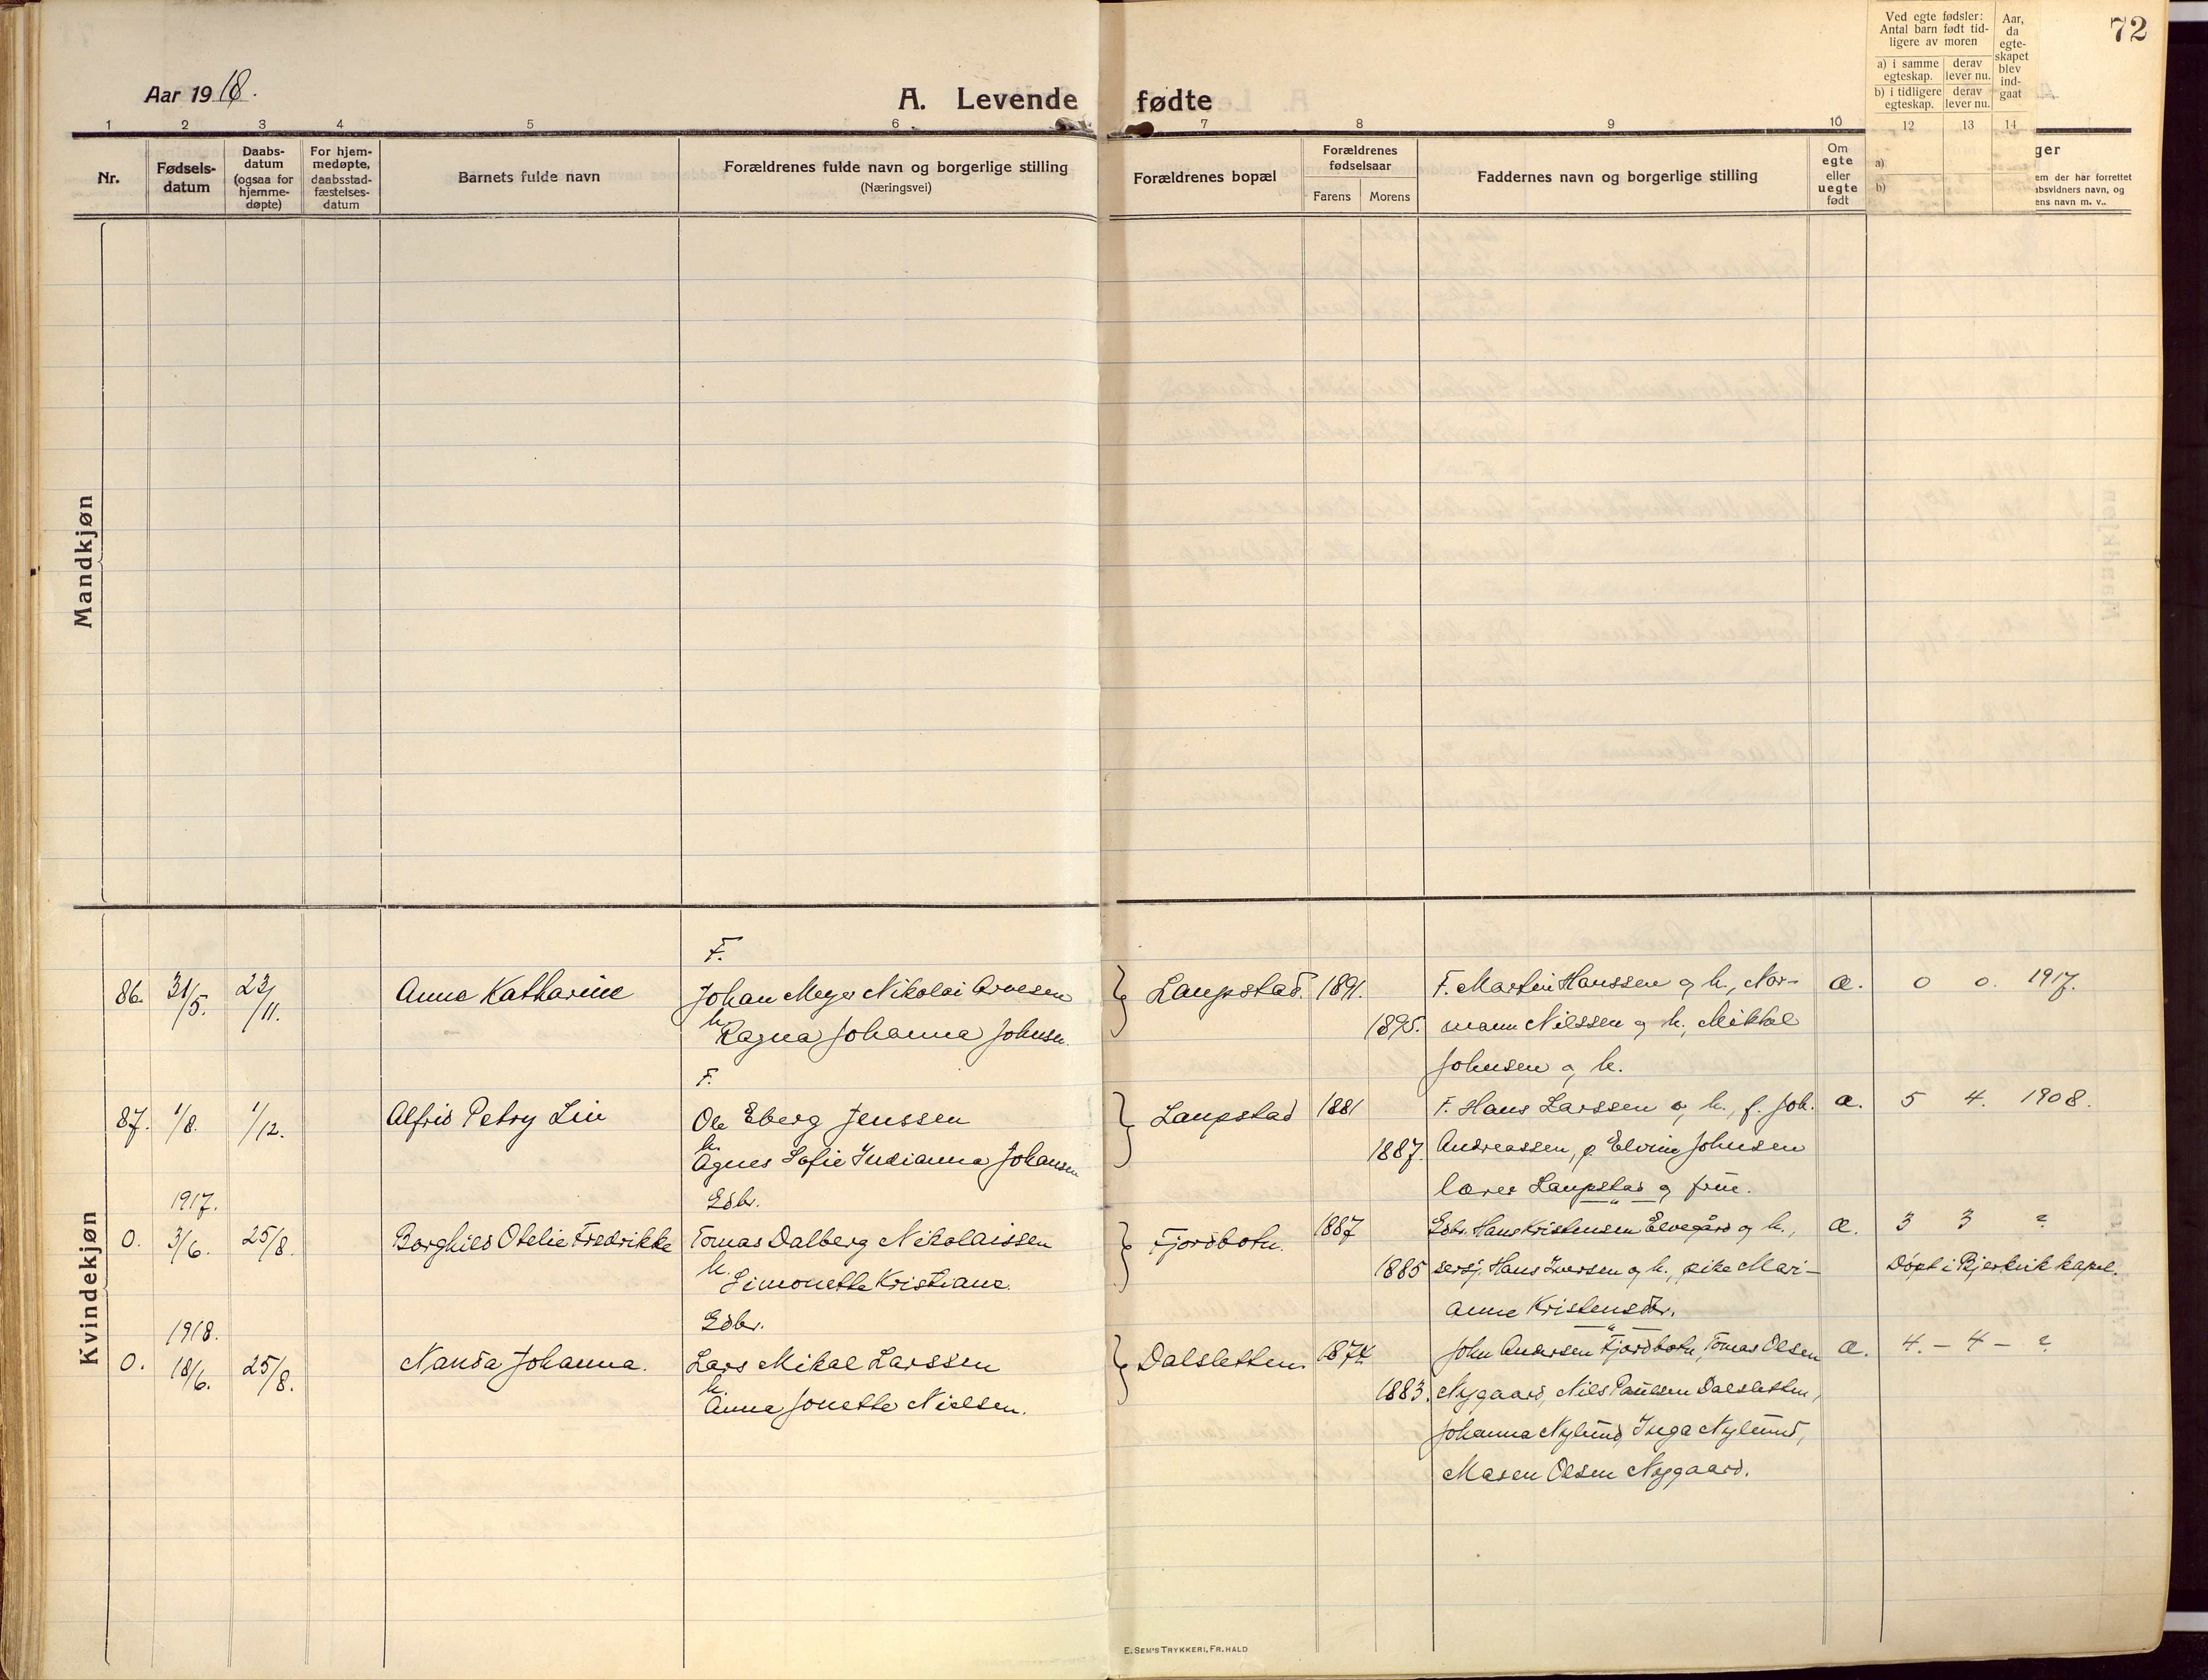 72
Aar 1918.
A. Levende fødte
Ved egte fødsler:
Antal barn født tid-
ligere av moren
a) i samme egteskap. derav lever nu.
b) i tidligere egteskap. derav lever nu.
Aar, da egte-skapet blev ind-gaat
1 2 3 4 5 6 7 8 9 10 12 13 14
Nr.
Fødsels-datum
Daabs-datum (ogsaa for hjemme-døpte)
For hjem-medøpte, daabsstad-fæstelses-datum
Barnets fulde navn
Forældrenes fulde navn og borgerlige stilling
(Næringsvei)
Forældrenes bopæl
Forældrenes fødselsaar
Farens Morens
Faddernes navn og borgerlige stilling
Om egte eller uegte født
a)
b)
ger
em der har forrettet
absvidners navn, og
ens navn m. v..
Mandkjøn
Kvindekjøn
F.
86. 31/5. 23/11. Anna Katharine Johan Meyer Nikolai Arnesen Laupstad. 1891. F. Martin Hanssen og h., Nor- æ. 0 0. 1917.
h. Ragna Johanna Johnsen. 1895. mann Nilssen og h., Mikkal
Johnsen og h.
F.
87. 1/8. 1/12. Alfrid Petry Liv Ole Eberg Jenssen Laupstad 1881 F. Hans Larssen og h., f. Joh. æ. 5 4. 1908.
h. Agnes Sofie Indianna Johansen 1887. Andreassen, p. Elvine Johnsen
lærer Laupstad og frue.
1917. Gdbr.
0. 3/6. 25/8. Borghild Otelie Fredrikke Tomas Dalberg Nikolaissen Fjordbotn. 1887 Gdbr. Hans Kristensen Elvegård og h., æ. 3 3 ?
h. Simonette Kristiane. 1885 sersj. Hans Iversen og h., pike Mari- Döpt i Bjerkvik kapel.
anne Kristensdr.
1918. Gdbr.
0. 18/6. 25/8. Nanda Johanna. Lars Mikal Larssen Dalsletten. 1874 John Andersen Fjordbotn, Tomas Olsen æ. 4. - 4 - ?
h. Anna Jonette Nielsen. 1883. Nygaard, Nils Paulsen Dalsletten,
Johanna Nylund, Inga Nylund,
Maren Olsen Nygaard.
E. SEM'S TRYKKERI, FR. HALD